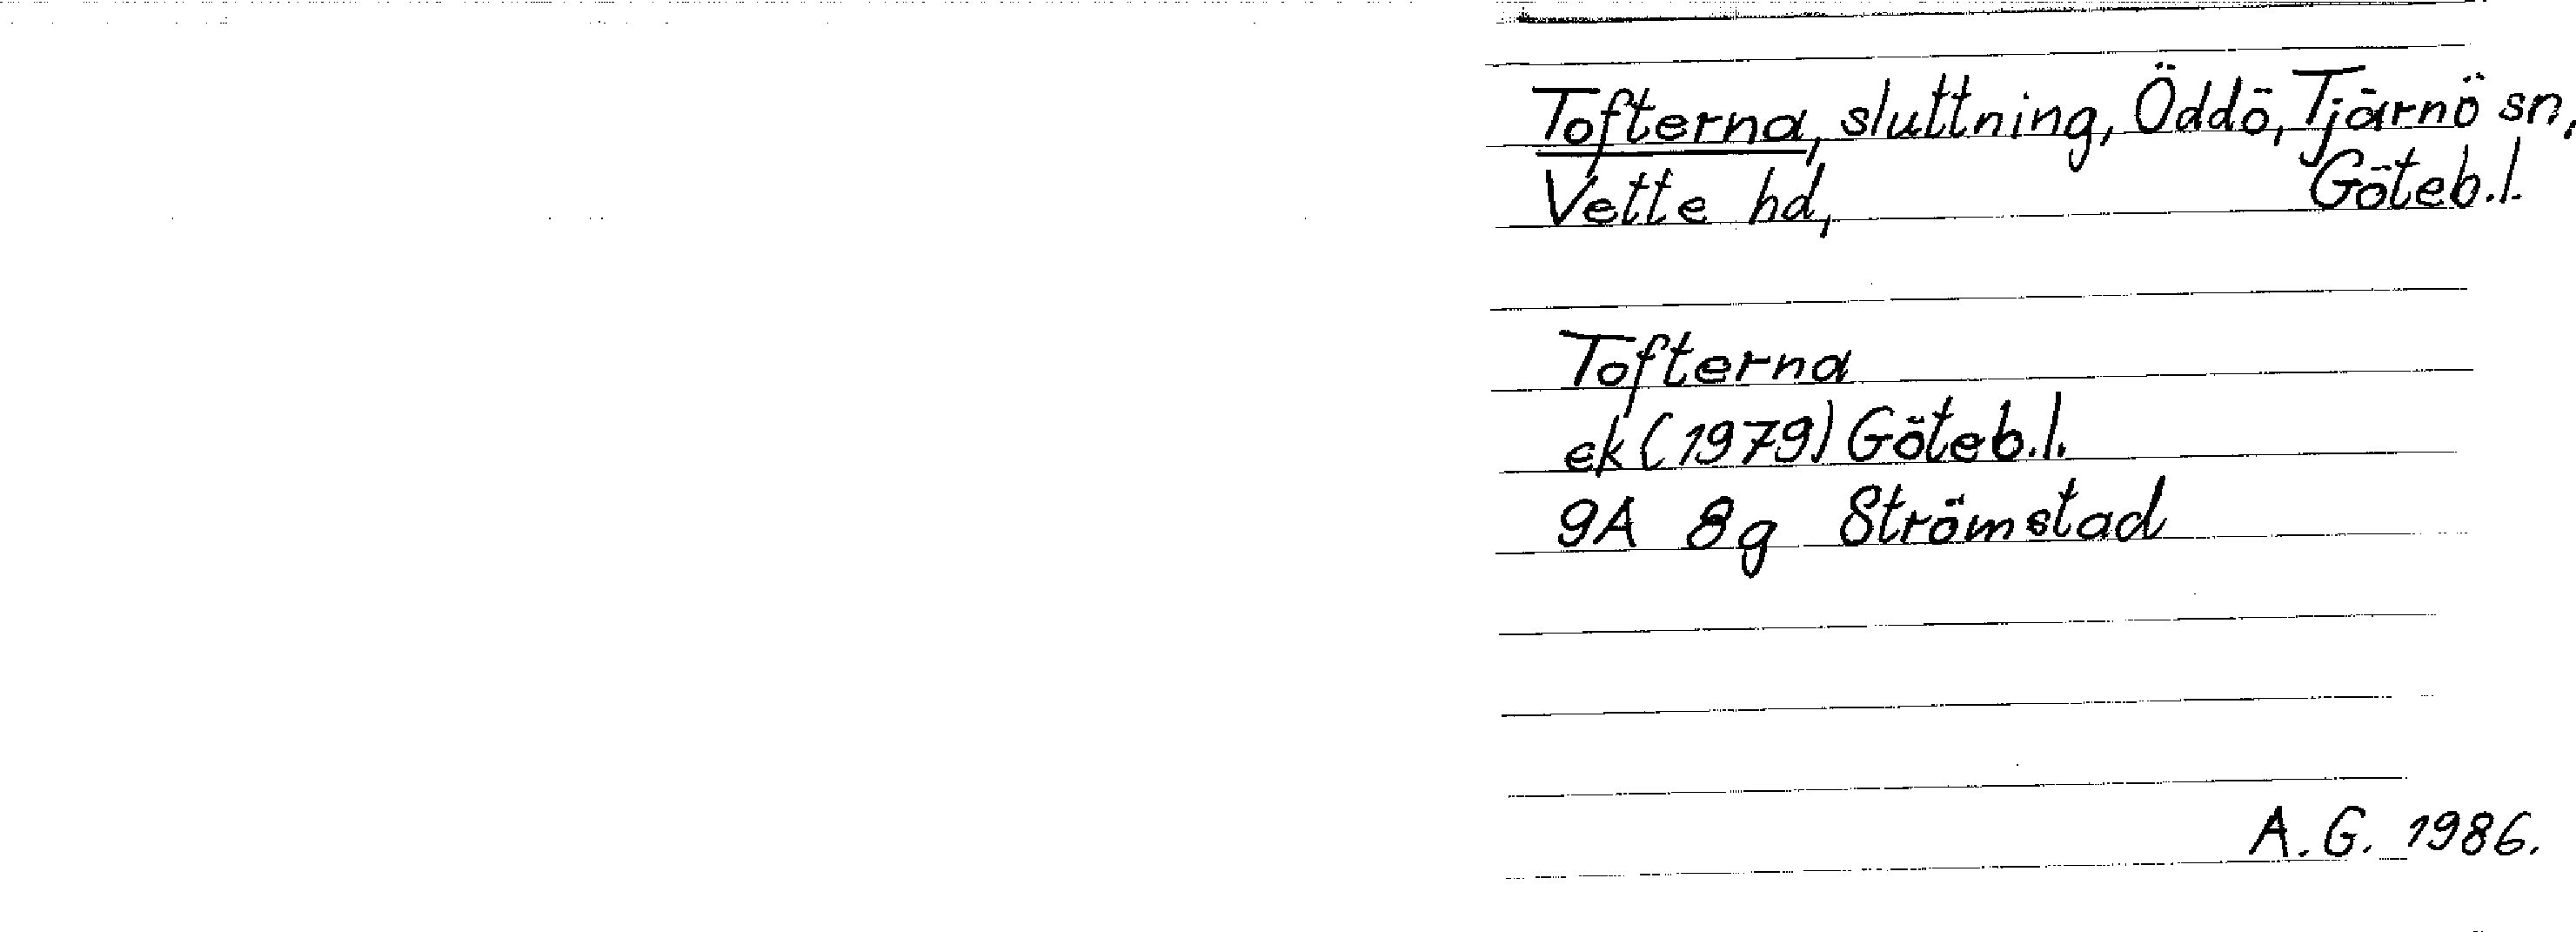 Tofterna, sluttning, Öddö, Tjärnö sn,
Vette hd, Göteb.l.
Tofterna
ek (1979) Göteb.l.
9A 8g Strömstad
A.G. 1986.